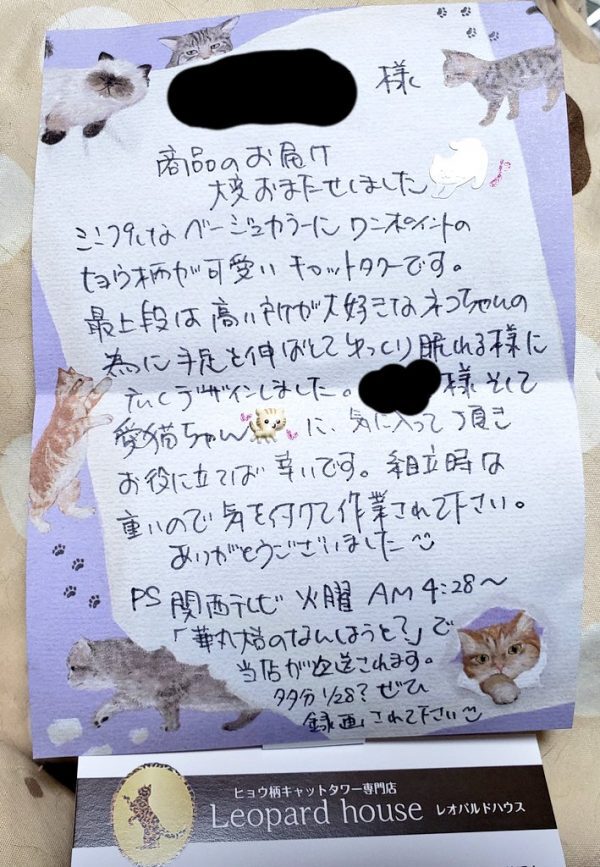 様
商品のお届け
大変おまたせしました
シンプルなベージュカラーにワンポイントの
ヒョウ柄が可愛いキャットタワーです。
最上段は高い所が大好きなネコちゃんの
為に手足を伸ばしてゆっくり眠れる様に
広くデザインしました。 様そして
愛猫ちゃん に、気に入って頂き
お役に立てば幸いです。組立時は
重いので気を付けて作業されて下さい。
ありがとうございました
PS 関西テレビ 火曜 AM 4:28〜
「華丸大吉のなんしようと?」で
当店が放送されます。
多分 1/28? ぜひ
録画されて下さい
ヒョウ柄キャットタワー専門店
Leopard house レオパルドハウス